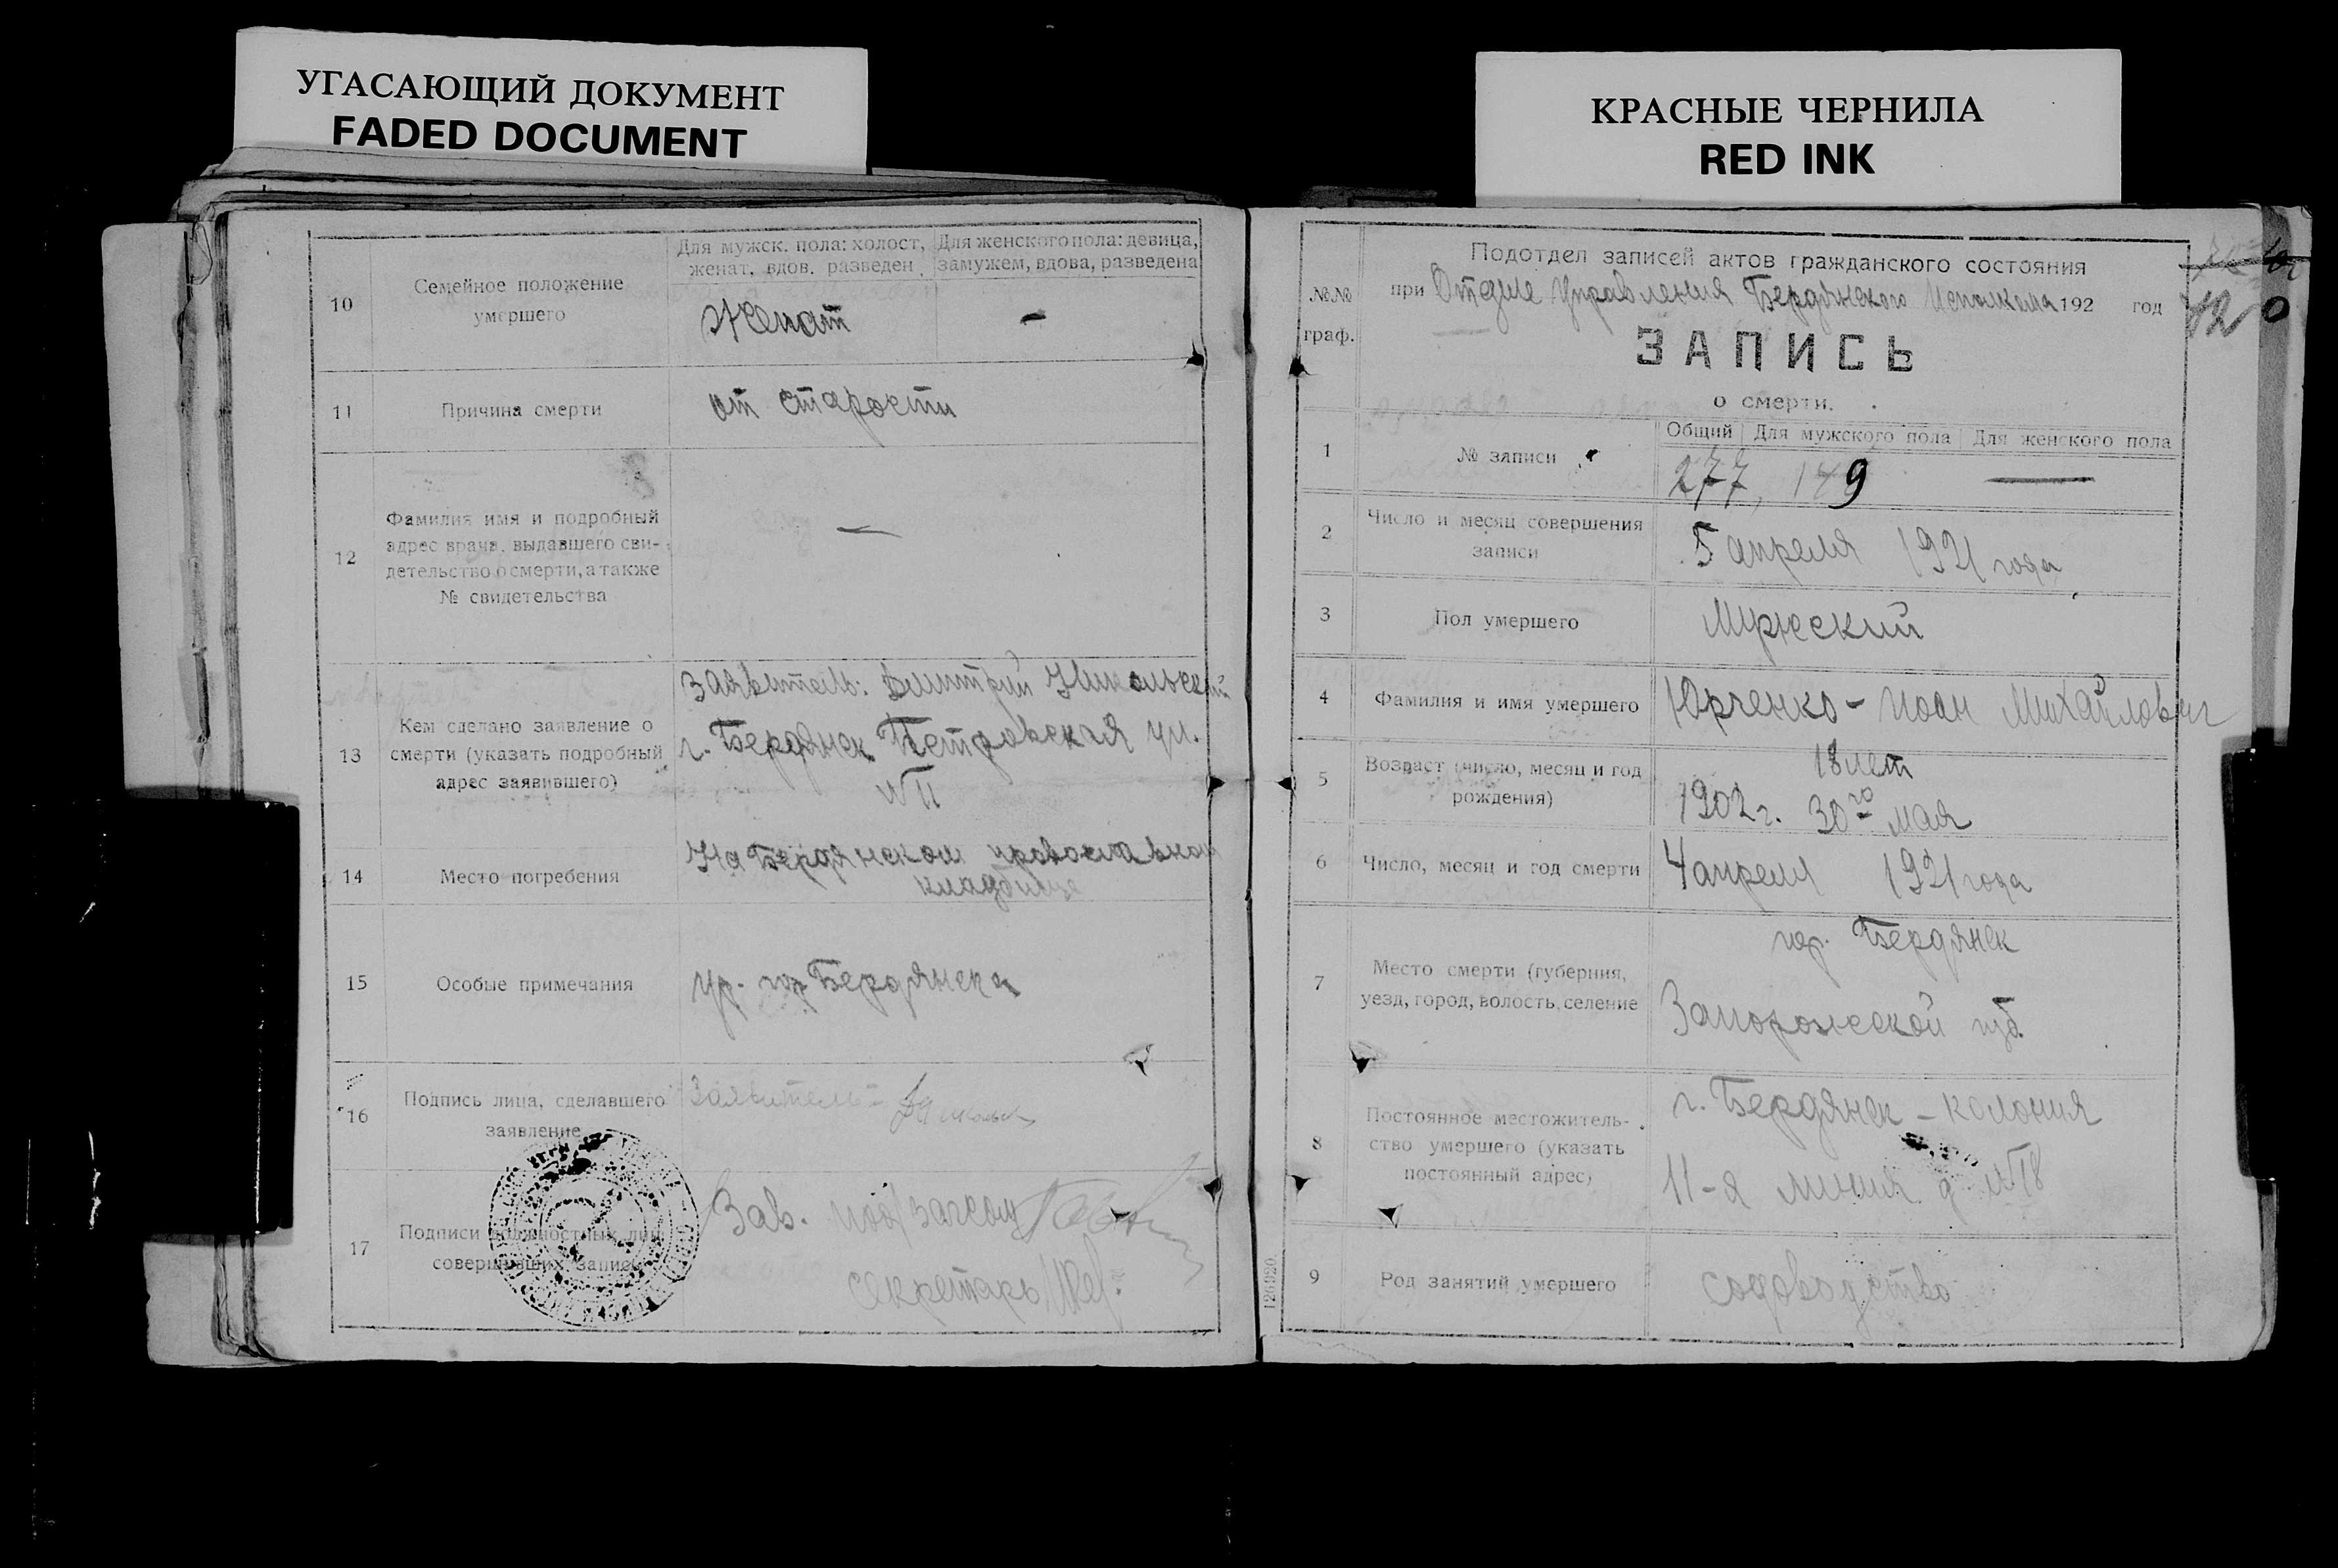 УГАСАЮЩИЙ ДОКУМЕНТ
FADED DOCUMENT
КРАСНЫЕ ЧЕРНИЛА
RED INK
10
Семейное положение
умершего
Для мужск. пола: холост,
женат, вдов, разведен
Для женского пола: девица,
замужем, вдова, разведена
Женат
-
11
Причина смерти
от старости
12
Фамилия имя и подробный
адрес врача, выдавшего сви-
детельство о смерти, а также
№ свидетельства
—
13
Кем сделано заявление о
смерти (указать подробный
адрес заявившего)
Заявитель: Дмитрий Никольский
г. Бердянск Петровская ул.
14
Место погребения
На Бердянском православном
кладбище
15
Особые примечания
ур. гор Бердянска
16
Подпись лица, сделавшего
заявление
Заявитель -
17
Подписи должностных лиц
совершивших запись
Зав.
секретарь
№№
граф.
Подотдел записей актов гражданского состояния
при Отделе Управления Бердянского Исполкома 192 год
120
ЗАПИСЬ
о смерти.
1
№ записи
Общий
Для мужского пола
Для женского пола
277, 149 —
2
Число и месяц совершения
записи
5 апреля 1921 года
3
Пол умершего
Мужеский
4
Фамилия и имя умершего
Юрченко - Иоан Михайлович
5
Возраст (число, месяц и год
рождения)
18 лет
1902 г. 30го мая
6
Число, месяц и год смерти
4 апреля 1921 года
7
Место смерти (губерния,
уезд, город, волость, селение
гор. Бердянск
Запорожской губ.
8
Постоянное местожитель-
ство умершего (указать
постоянный адрес)
г. Бердянск - колония
11-я линия д. №18
9
Род занятий умершего
садоводство
126920